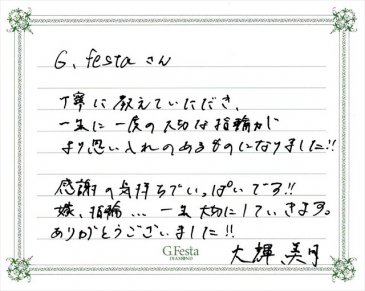 G. festa さん
丁寧に教えていただき、
一生に一度の大切な指輪が
より思い入れのあるものになりました!!
感謝の気持ちでいっぱいです!!
嫁、指輪... 一生大切にしていきます。
ありがとうございました!!
大輝 美月
G.Festa
DIAMOND